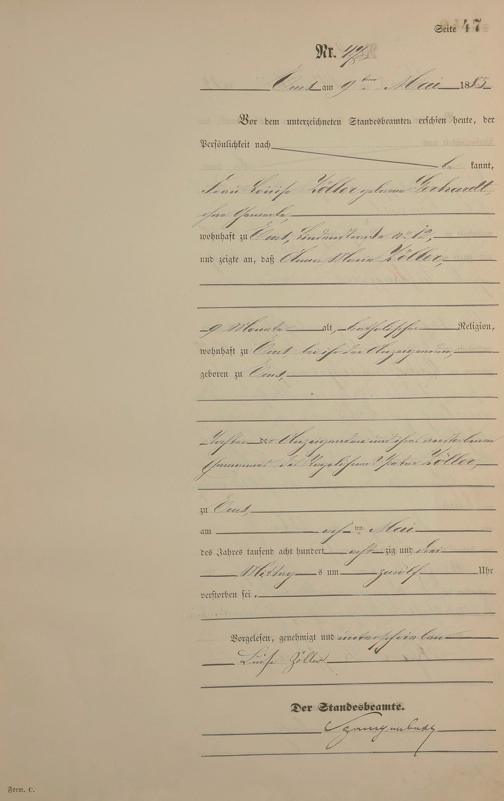 Seite 47
Nr. 47
Ems am 9ten Mai 1883
Vor dem unterzeichneten Standesbeamten erschien heute, der
Persönlichkeit nach
be kannt,
Frau Louise Zöller geborene Gerhardt
ohne Gewerbe,
wohnhaft zu Ems,
und zeigte an, daß Anna Maria Zöller,
9 Monate alt, katholischer Religion,
wohnhaft zu Ems bei ihr der Anzeigenden,
geboren zu Ems,
Tochter der Anzeigenden und ihres verstorbenen
Ehemannes des Peter Zöller,
zu Ems,
am acht ten Mai
des Jahres tausend acht hundert acht zig und drei
Mittag s um zwölf Uhr
verstorben sei.
Vorgelesen, genehmigt und unterschrieben
Luise Zöller
Der Standesbeamte.
Form. C.